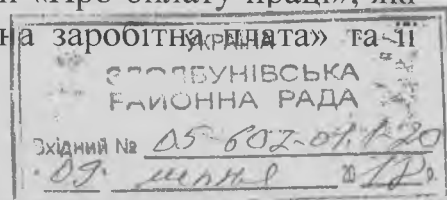 «Про оплату праці», які
на заробітна плата» та її
УКРАЇНА
ЗДОЛБУНІВСЬКА
РАЙОННА РАДА
Вхідний № 05-602-01.1-20
"09" липня 2018 р.